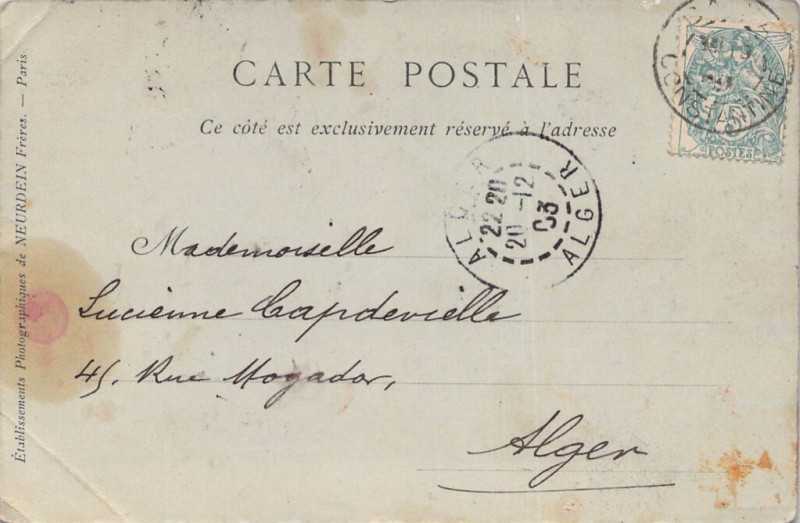 CARTE POSTALE
Ce côté est exclusivement réservé à l'adresse
CONSTANTINE
POSTES
ALGER
22 20
20 -12
03
ALGER
Mademoiselle
Lucienne Capdevielle
45. Rue Mogador,
Alger
Établissements Photographiques de NEURDEIN Frères. — Paris